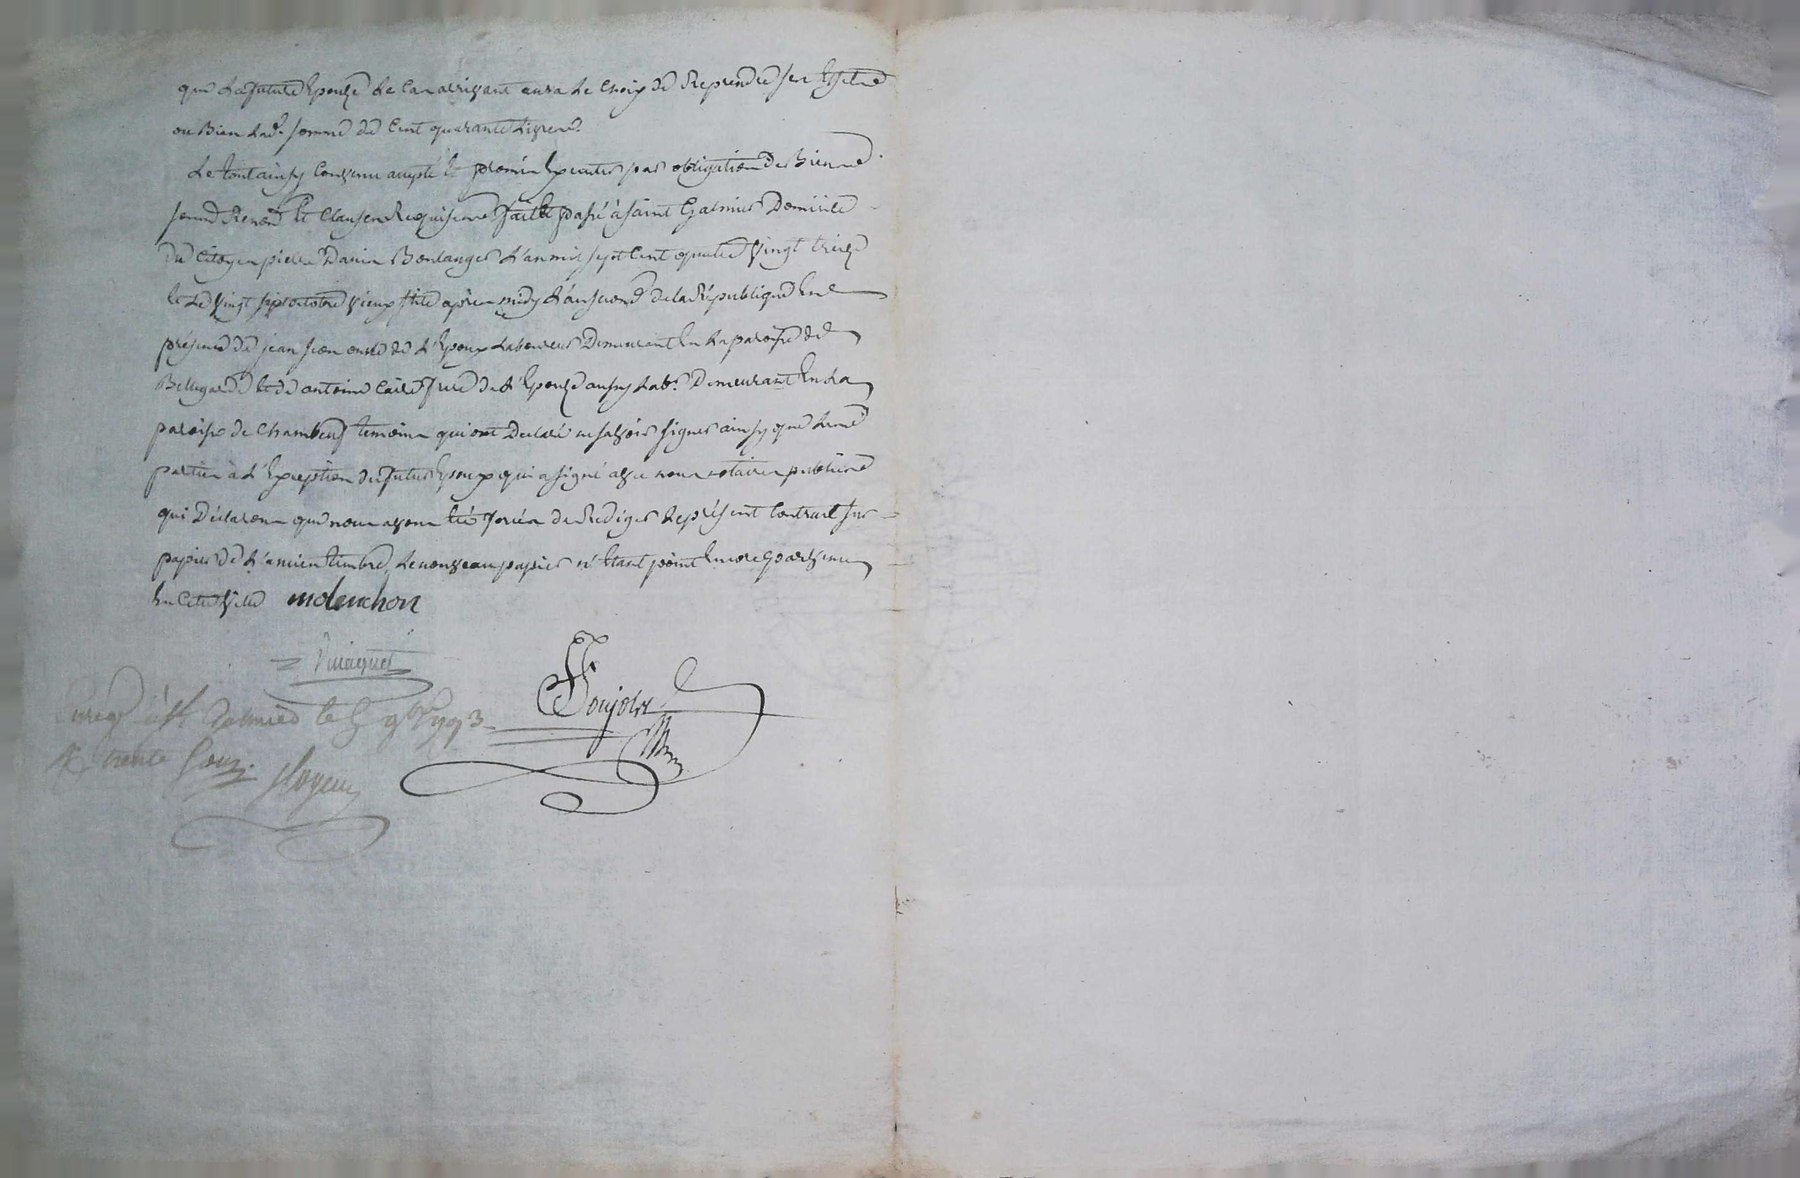 que La future Epouze Le Cas arrivant aura Le Choix de Reprendre ses Effets
ou Bien Lad.e somme de Cent quarante Livres.
Le tout ainsy Convenu accepté et promis Executer par obligation de Biens
soumis Renon.d et Clauses Requises fait et passé à Saint Galmier Domicile
du Citoyen pierre Boulanger L'an mil sept Cent quatre vingt treize
et Le vingt sept octobre vieux stile après midy L'an second de la République En
présence de jean oncle de L'Epoux Laboureur Demeurant En La paroisse de
Bellegarde et de antoine frere de L'Epouze aussy Lab.r Demeurant En La
paroisse de Chambeuf temoins qui ont Declaré ne sçavoir signer ainsy que Les
parties à L'Exception du futur Epoux qui a signé avec nous notaires publics
qui Déclarons que nous avons été forcés de Rediger Le présent Contract sur
papier de L'ancien timbre, Le nouveau papier n'Etant point Encore parvenu
En Cette ville molenchon
Poujolx
à St Galmier le 5 9bre 1793
R. trente sous.